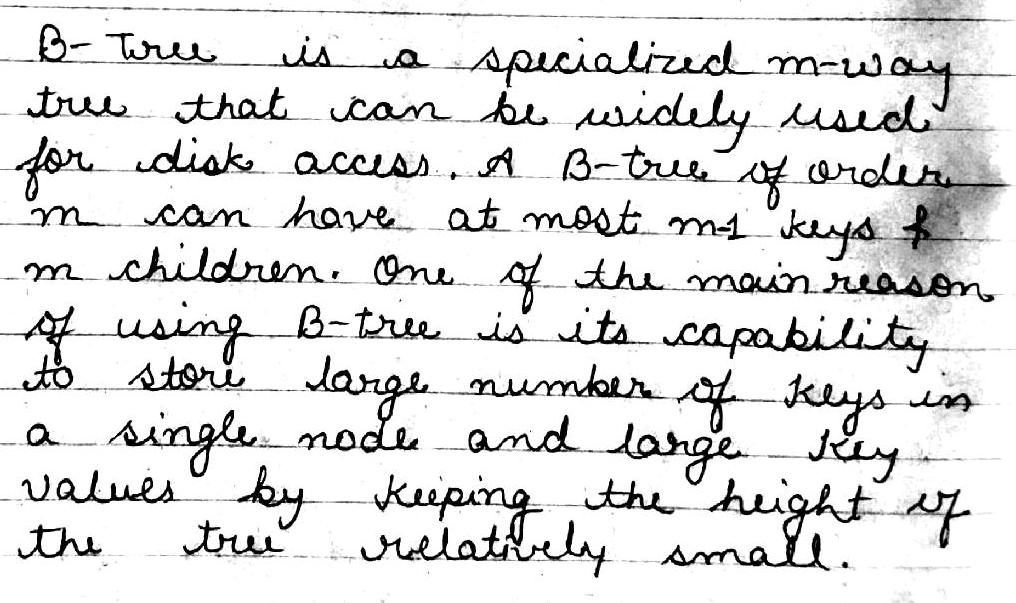 B- Tree is a specialized m-way
tree that can be widely used
for disk access. A B-tree of order
m can have at most m-1 keys &
m children. One of the main reason
of using B-tree is its capability
to store large number of keys in
a single node and large key
values by keeping the height of
the tree relatively small.